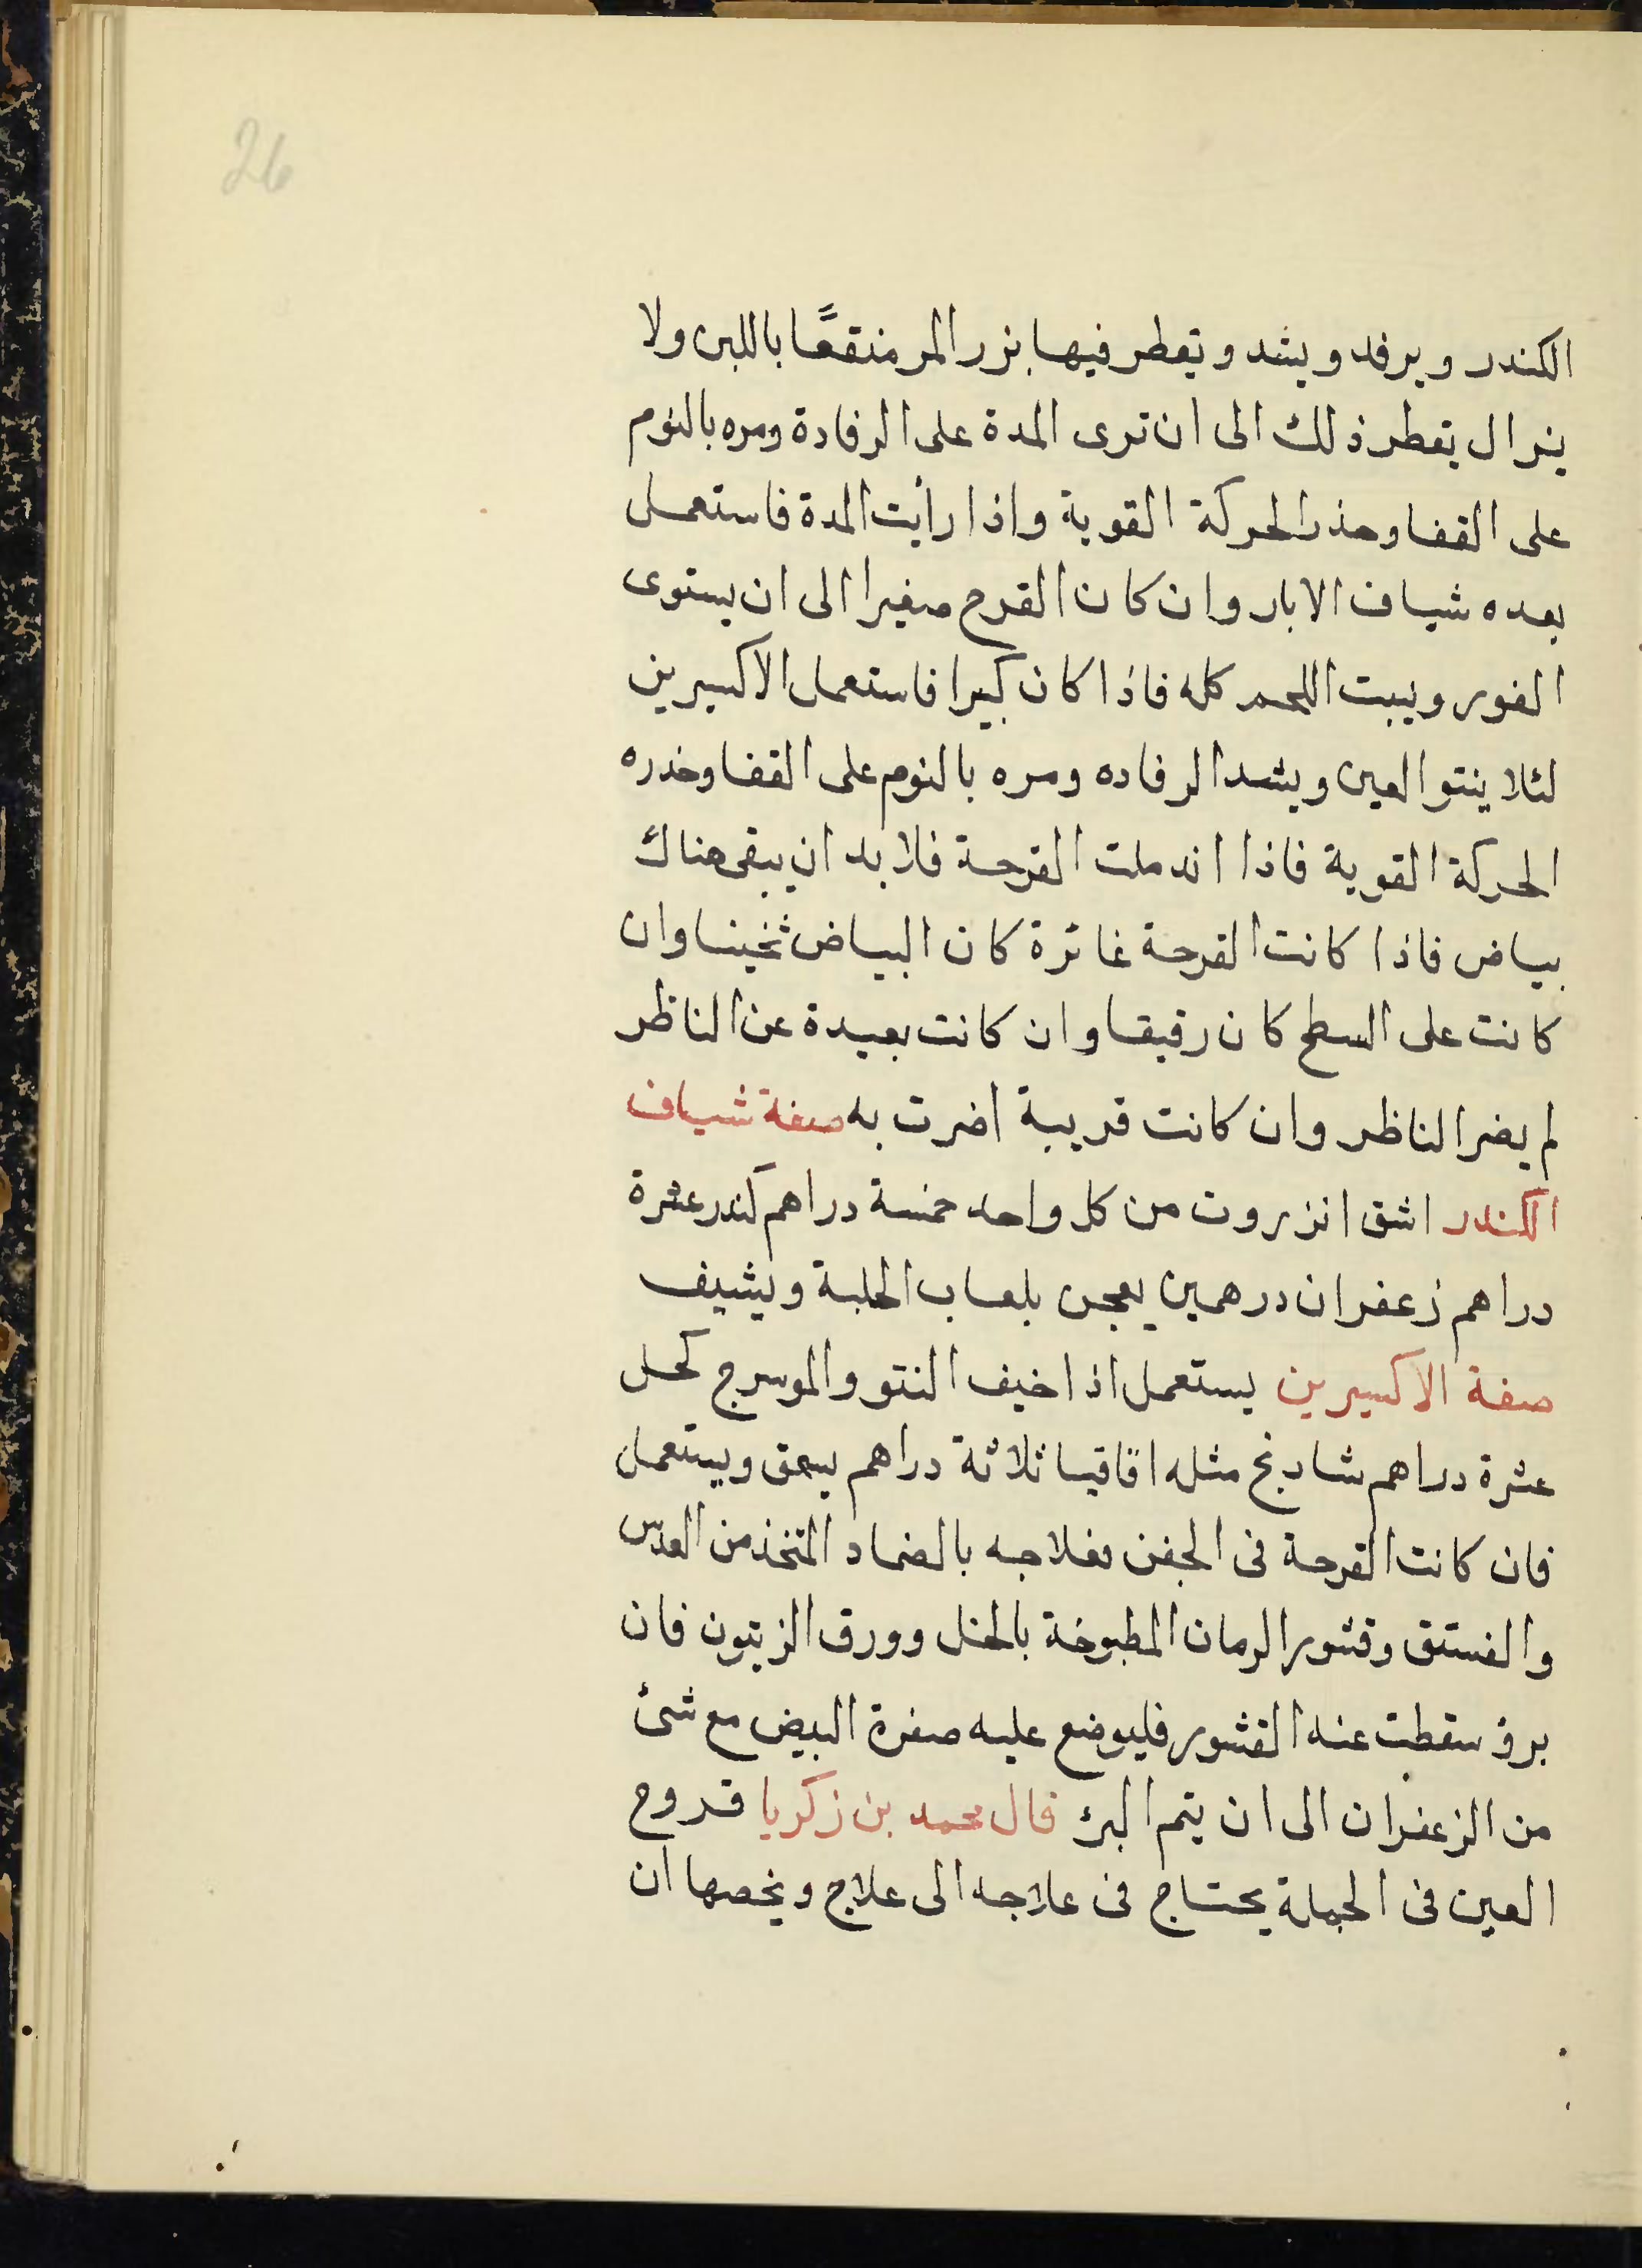 26
الكندر ويرفد ويشد وتقطر فيها بزر المر منتقعًا باللبن ولا
يزال يقطر ذلك الى ان ترى المدة على الرفادة ومره بالنوم
على القفا وحذر الحركة القوية واذا رأيت المدة فاستعمل
بعده شياف الابار وان كان القرح صغيرا الى ان يستوى
الغور وينبت اللحم كله فاذا كان كبيرا فاستعمل الاكسيرين
لئلا ينتو العين ويشد الرفاده ومره بالنوم على القفا وحذره
الحركة القوية فاذا اندملت القرحة فلا بد ان يبقى هناك
بياض فاذا كانت القرحة غائرة كان البياض ثخينا وان
كانت على السطح كان رقيقا وان كانت بعيدة عن الناظر
لم يضر الناظر وان كانت قريبة اضرت به صفة شياف
الكندر اشق انزروت من كل واحد خمسة دراهم كندر عشرة
دراهم زعفران درهمين يعجن بلعاب الحلبة ويشيف
صفة الاكسيرين يستعمل اذا خيف النتو والموسرج كحل
عشرة دراهم شادنج مثله اقاقيا ثلاثة دراهم يسحق ويستعمل
فان كانت القرحة فى الجفن فعلاجه بالضماد المتخذ من العدس
والفستق وقشور الرمان المطبوخة بالخل وورق الزيتون فان
برؤ سقطت عنه القشور فليوضع عليه صفرة البيض مع شئ
من الزعفران الى ان يتم البرء قال محمد بن زكريا قروح
العين فى الجملة يحتاج فى علاجه الى علاج ويخصها ان